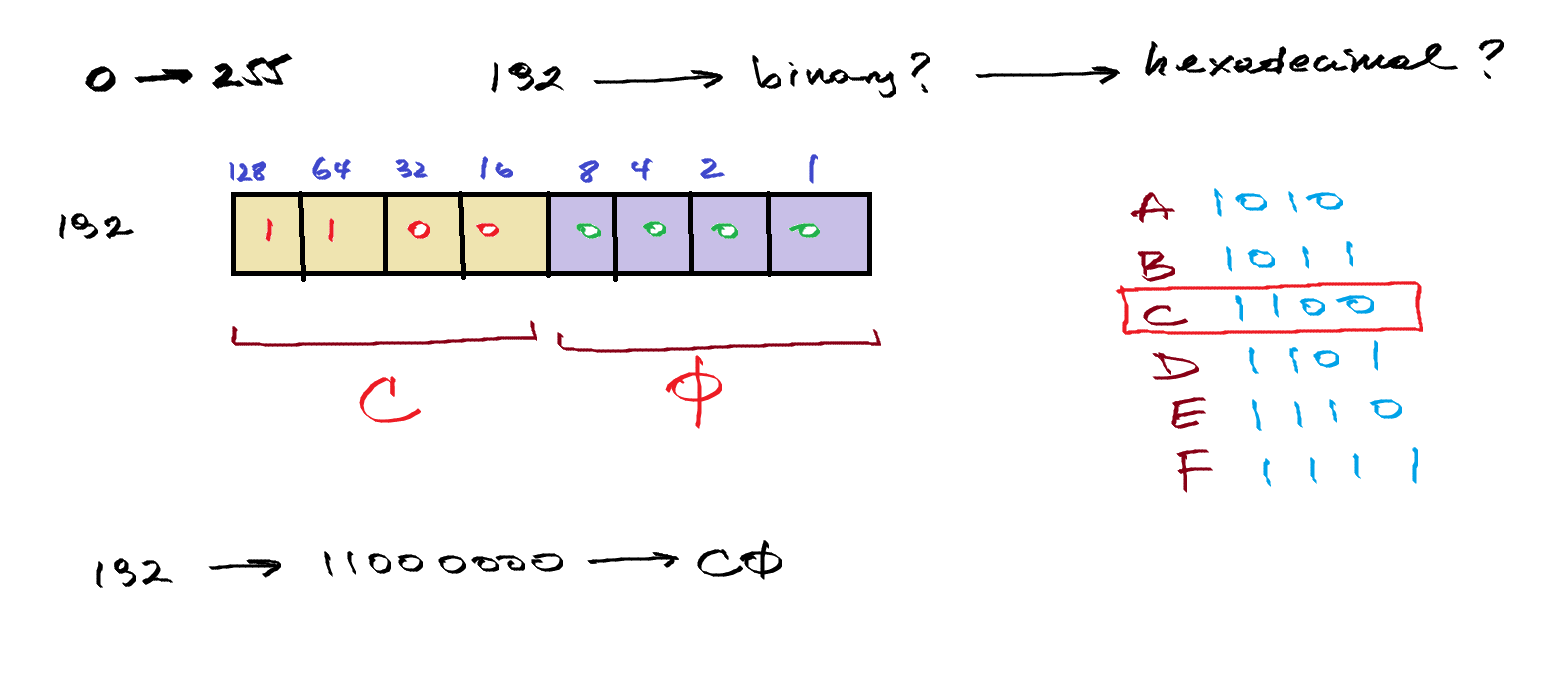 0 → 255 192 → binary? → hexadecimal?
128 64 32 16 8 4 2 1
192 1 1 0 0 0 0 0 0
C Φ
A 1010
B 1011
C 1100
D 1101
E 1110
F 1111
192 → 11000000 → CΦ